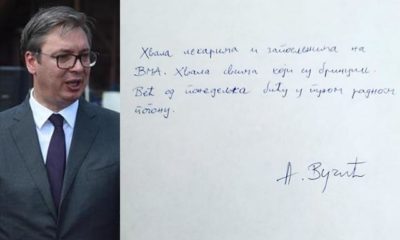 Хвала лекарима и запосленима на
ВМА. Хвала свима који су бринули.
Већ од понедељка бићу у пуном радном
погону.
А. Вучић